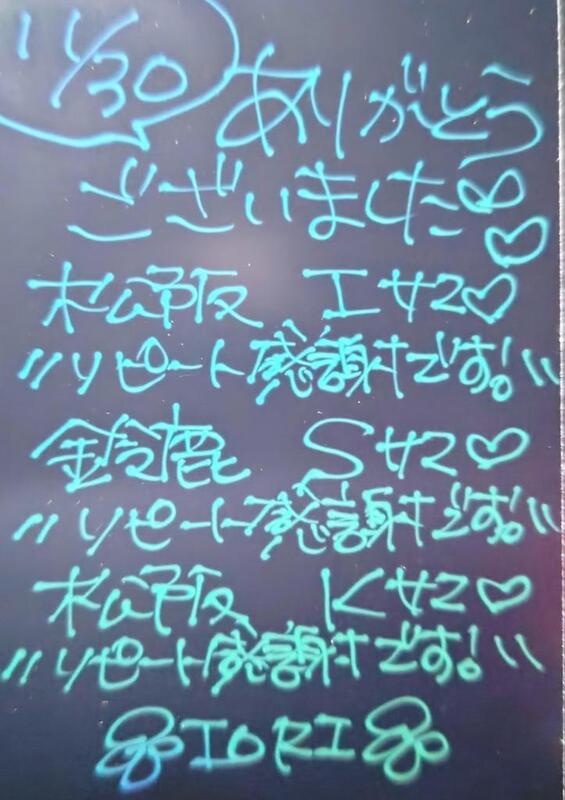 11/30
ありがとう
ございました♡♡
松阪 Iサン♡
〃リピート感謝です!〃
鈴鹿 Sサン♡
〃リピート感謝です!〃
松阪 Kサン♡
〃リピート感謝です!〃
IORI